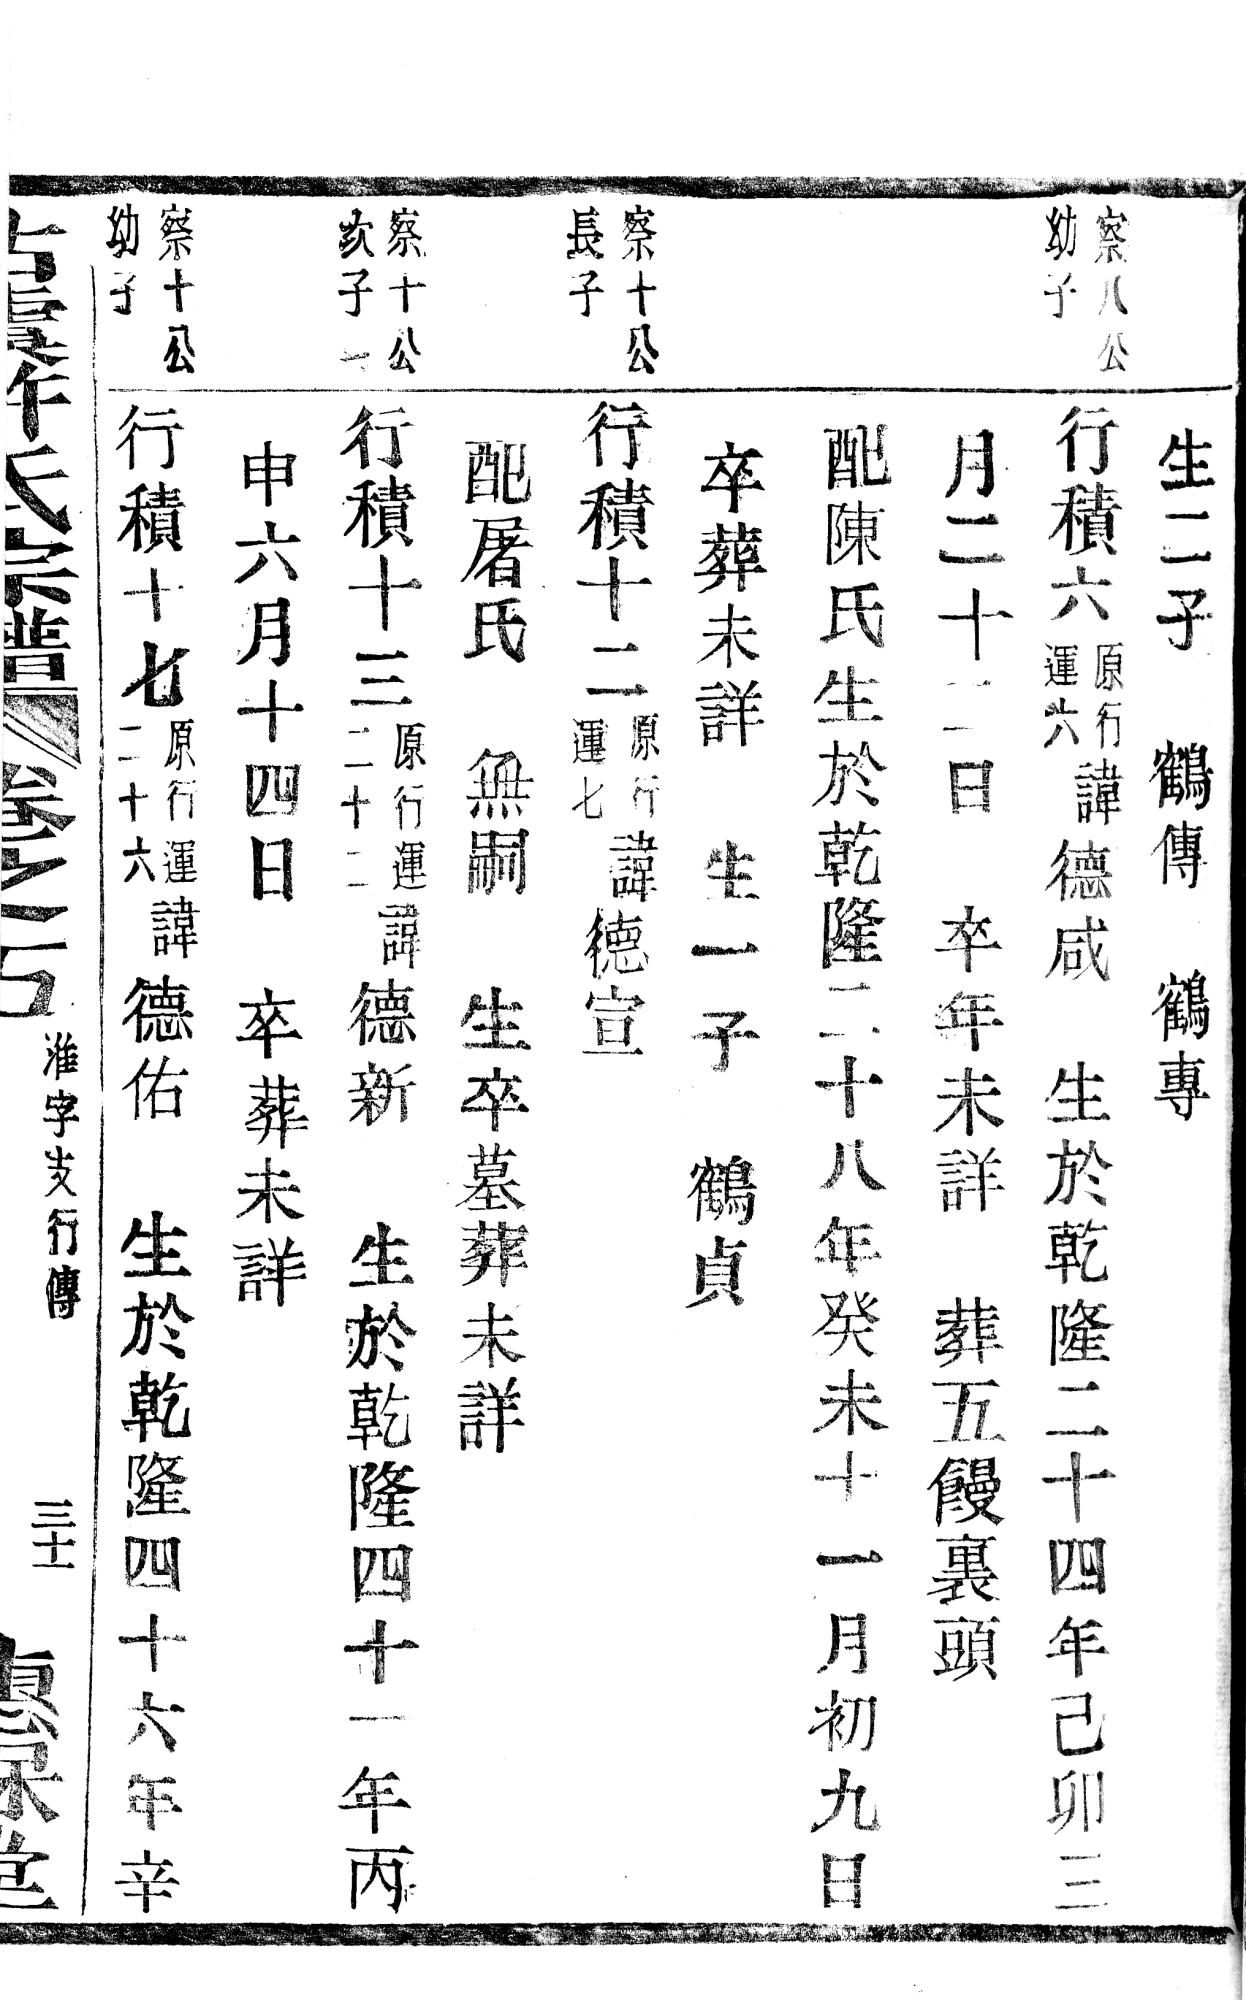 生二子　鶴傳　鶴專
察八公
幼子
行積六原行運六諱德咸　生於乾隆二十四年己卯三
月二十二日　卒年未詳　葬五饅裏頭
配陳氏生於乾隆二十八年癸未十一月初九日
卒葬未詳　生一子　鶴貞
察十公
長子
行積十二原行運七諱德宣
配屠氏　無嗣　生卒墓葬未詳
察十公
次子
行積十三原行運二十二諱德新　生於乾隆四十一年丙
申六月十四日　卒葬未詳
察十公
幼子
行積十七原行運二十六諱德佑　生於乾隆四十六年辛
古虞許氏宗譜　卷之　淮字支行傳　三十　惠保堂